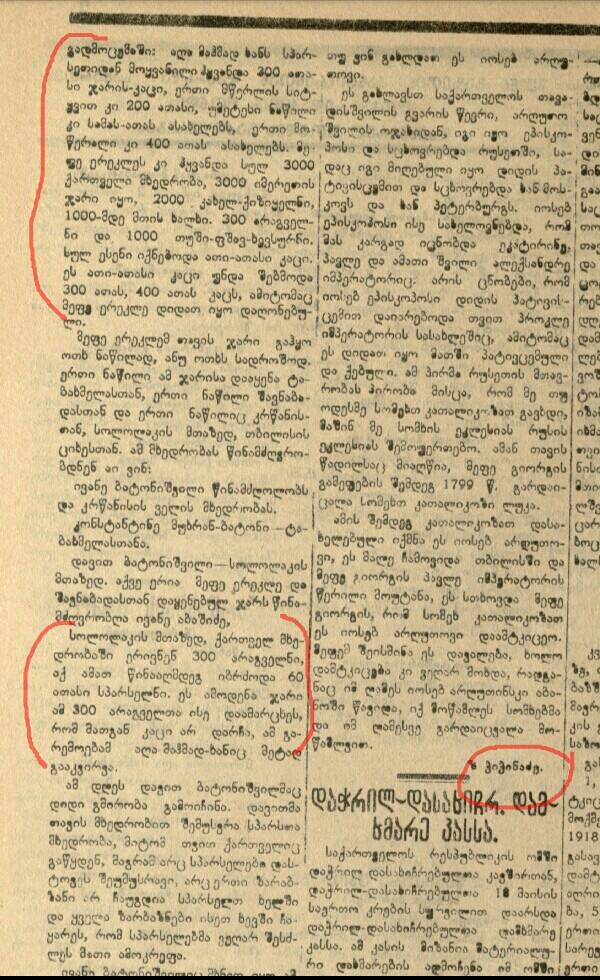 გადმოცემაში: აღა მაჰმად ხანს სპარ-
სეთიდან მოყვანილი ჰყვანდა 300 ათა-
სი ჯარის-კაცი, ერთი მწერლის სიტ-
ყვით კი 200 ათასი, უმეტესი ნაწილი
კი სამას-ათას ასახელებს, ერთი მო-
წერალი კი 400 ათას ასახელებს. მე-
ფე ერეკლეს კი ჰყვანდა სულ 3000
ქართველი მხედრობა, 3000 იმერეთის
ჯარი იყო, 2000 კახელ-ქიზიყელნი,
1000-მდე მთის ხალხი. 300 არაგველ-
ნი და 1000 თუში-ფშავ-ხევსურნი.
სულ ესენი იქნებოდა ათი-ათასი კაცი.
ეს ათი-ათასი კაცი უნდა შებმოდა
300 ათას, 400 ათას კაცს, ამიტომაც
მეფე ერეკლე დიდათ იყო დაღონებუ-
ლი.
მეფე ერეკლემ თავის ჯარი გაჰყო
ოთხ ნაწილად, ანუ ოთხს სადროშოდ.
ერთი ნაწილი ამ ჯარისა დააყენა ტა-
ბახმელასთან, ერთი ნაწილი შავნაბა-
დასთან და ერთი ნაწილიც კრწანის-
თან, სოლოლაკის მთაზედ, თბილისის
ციხესთან. ამ მხედრობას წინამძღვრო-
ბდნენ აი ვინ:
ივანე ბატონიშვილი წინამძღოლობს
და კრწანისის ველის მხედრობას.
კონსტანტინე მუხრან-ბატონი—ტა-
ბახმელასთანა.
დავით ბატონიშვილი—სოლოლაკის
მთაზედ. აქვე ერია მეფე ერეკლე და
შავნაბადასთან დაყენებულ ჯარს წინა-
მძღვრობდა ივანე აბაშიძე,
სოლოლაკის მთაზედ, ქართველ მხე-
დრობაში ერივნენ 300 არაგველნი,
აქ ამათ წინააღმდეგ იბრძოდა 60
ათასი სპარსელნი. ეს ამოდენა ჯარი
ამ 300 არაგველთა ისე დაამარცხეს,
რომ მათგან კაცი არ დარჩა, ამ გა-
რემოებამ აღა მაჰმად-ხანიც მეტად
გააკვირვა.
ამ დღეს დავით ბატონიშვილმაც
დიდი გმირობა გამოიჩინა. დავითმა
თავის მხედრობით შემუსრა სპარსთა
მხედრობა, მიტომ თვით ქართველიც
გაწყდენ, მაგრამ არც სპარსელები დას-
ტოვეს შეუმუსრავი, არც ერთი ზარაბ-
ზანი არ ჩაუგდია სპარსელთ ხელში
და ყველა ზარბაზნები ისეთ ხევში ჩა-
ყარეს, რომ სპარსელებმა ვეღარ შესძ-
ლეს მათი ამოკრეფა.
თუ ვინ გახლდათ ეს იოსებ არღუ-
თოვი.
ეს გახლავსთ საქართველოს თავა-
დისშვილის გვარის წევრი, არღუთო
შვილის ოჯახიდან, იგი იყო ეპისკო-
პოსი და სცხოვრებდა რუსეთში, სა-
დაც იგი მიღებული იყო დიდის პა-
ტივისცემით და სცხოვრებდა ხან მოს-
კოვს და ხან პეტერბურგს. იოსებ
ეპისკოპოსი ისე სახელოვნდება, რომ
მას კარგად იცნობდა ეკატირინე,
პავლე და ამათი შვილი ალექსანდრე
იმპერატორიც. არის ცნობები, რომ
იოსებ ეპისკოპოსი დიდის პატივის-
ცემით დაიარებოდა თვით პროკლე
იმპერატორის სასახლეშიც, ამიტომაც
ეს დიდათ იყო მათში პატივცემული
და ქებული. ამ პირმა რუსეთის მთავ-
რობას პირობა მისცა, რომ მე თუ
ოდესმე სომეხთ კათალიკოზათ გავხდი,
მაშინ მე სომხის ეკლესიას რუსის
ეკლესიას შემოვერთებო. ამან თავის
წადილსაც მიაღწია, მეფე გიორგის
გამეფების შემდეგ 1799 წ. გარდაი-
ცვალა სომეხთ კათალიკოზი ლუკა.
ამის შემდეგ კათალიკოზათ დასა-
ხელებული იქმნა ეს იოსებ არღუთო-
ვი, ეს მალე ჩამოვიდა თბილისში და
მეფე გიორგის პავლე იმპერატორის
წერილი მოუტანა, ეს სთხოვდა მეფე
გიორგის, რომ სომეხ კათალიკოზათ
ეს იოსებ არღუთოვი დაამტკიცეო.
მეფემ შეისმინა ეს დავალება, ხოლო
დამტკიცება კი ვეღარ მოხდა, რადგა-
ნაც იმ ღამეს იოსებ არღუთინსკი აბა-
ნოში წავიდა, იქ მოწამლეს სომხებმა
და იმ ღამესვე გარდაიცვალა მო-
წამვლით.
ზ ჭიჭინაძე.
დაჭრილ-დასახიჩრ. დამ-
ხმარე კასსა.
საქართველოს რესპუბლიკის ომში
დაჭრილ-დასახიჩრებულთა კავშირთან,
დაჭრილ-დასახიჩრებულთა 18 მაისის
საერთო კრების სურვილით დაარსდა
დაჭრილ-დასახიჩრებულთა დამხმარე
კასსა. ამ კასის მიზანია მატერიალუ-
რი დახმარების აღმოჩენა იმ ომში